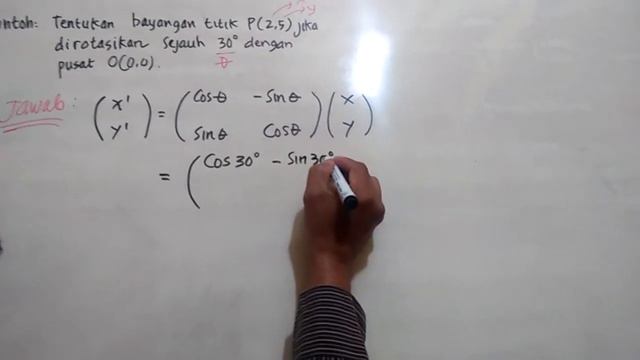 ntoh: Tentukan bayangan titik P(2,5) jika
x y
dirotasikan sejauh 30° dengan
θ
pusat O(0,0).
Jawab: (x' y') = (cosθ -sinθ sinθ cosθ)(x y)
= (cos30° - sin30°